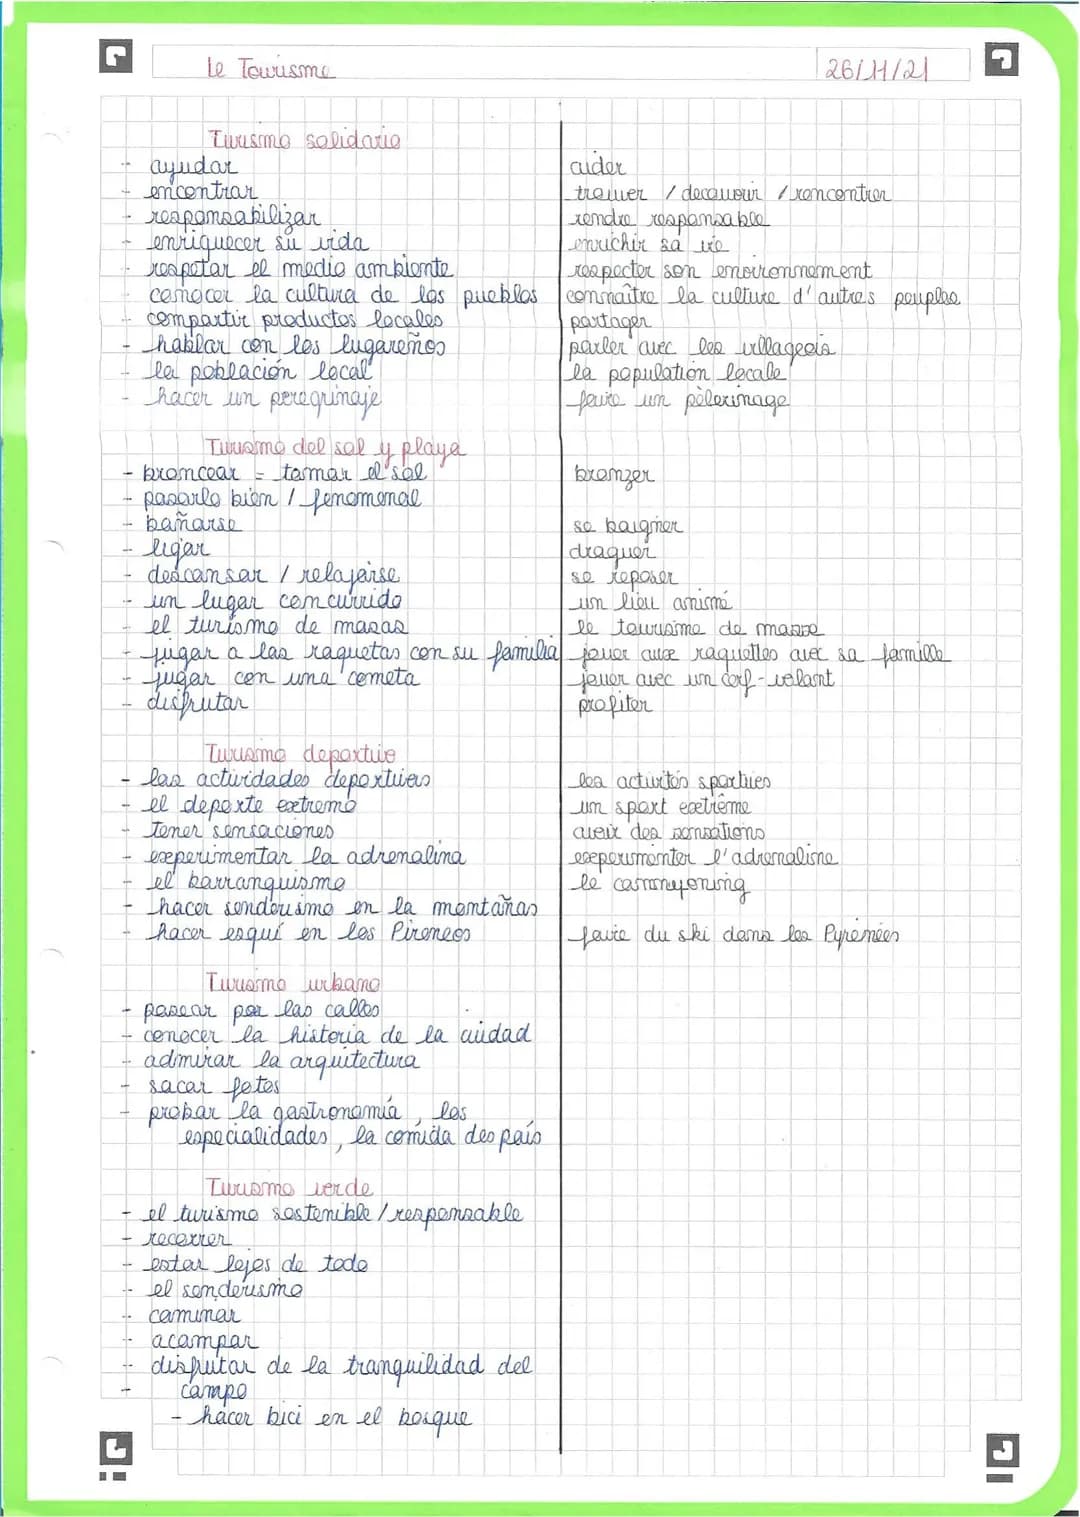 Le Tourisme
26/11/21
Turismo solidario
- ayudar
aider
- encontrar
trouver / découvrir / rencontrer
- responsabilizar
rendre responsable
- enriquecer su vida
enrichir sa vie
- respetar el medio ambiente
respecter son environnement
- conocer la cultura de los pueblos
connaître la culture d'autres peuples
- compartir productos locales
partager
- hablar con los lugareños
parler avec les villageois
- la población local
la population locale
- hacer un peregrinaje
faire un pèlerinage
Turismo del sol y playa
- broncear = tomar el sol
bronzer
- pasarlo bien / fenomenal
- bañarse
se baigner
- ligar
draguer
- descansar / relajarse
se reposer
- un lugar concurrido
un lieu animé
- el turismo de masas
le tourisme de masse
- jugar a las raquetas con su familia
jouer aux raquettes avec sa famille
- jugar con una cometa
jouer avec un cerf-volant
- disfrutar
profiter
Turismo deportivo
- las actividades deportivas
les activités sportives
- el deporte extremo
un sport extrême
- tener sensaciones
avoir des sensations
- experimentar la adrenalina
experimenter l'adrenaline
- el barranquismo
le cannyoning
- hacer senderismo en la montañas
- hacer esquí en los Pireneos
faire du ski dans les Pyrénées
Turismo urbano
- pasear por las calles
- conocer la historia de la ciudad
- admirar la arquitectura
- sacar fotos
- probar la gastronomía, las
especialidades, la comida des país
Turismo verde
- el turismo sostenible / responsable
- recorrer
- estar lejos de todo
- el senderismo
- caminar
- acampar
- disfrutar de la tranquilidad del
- campo
- hacer bici en el bosque